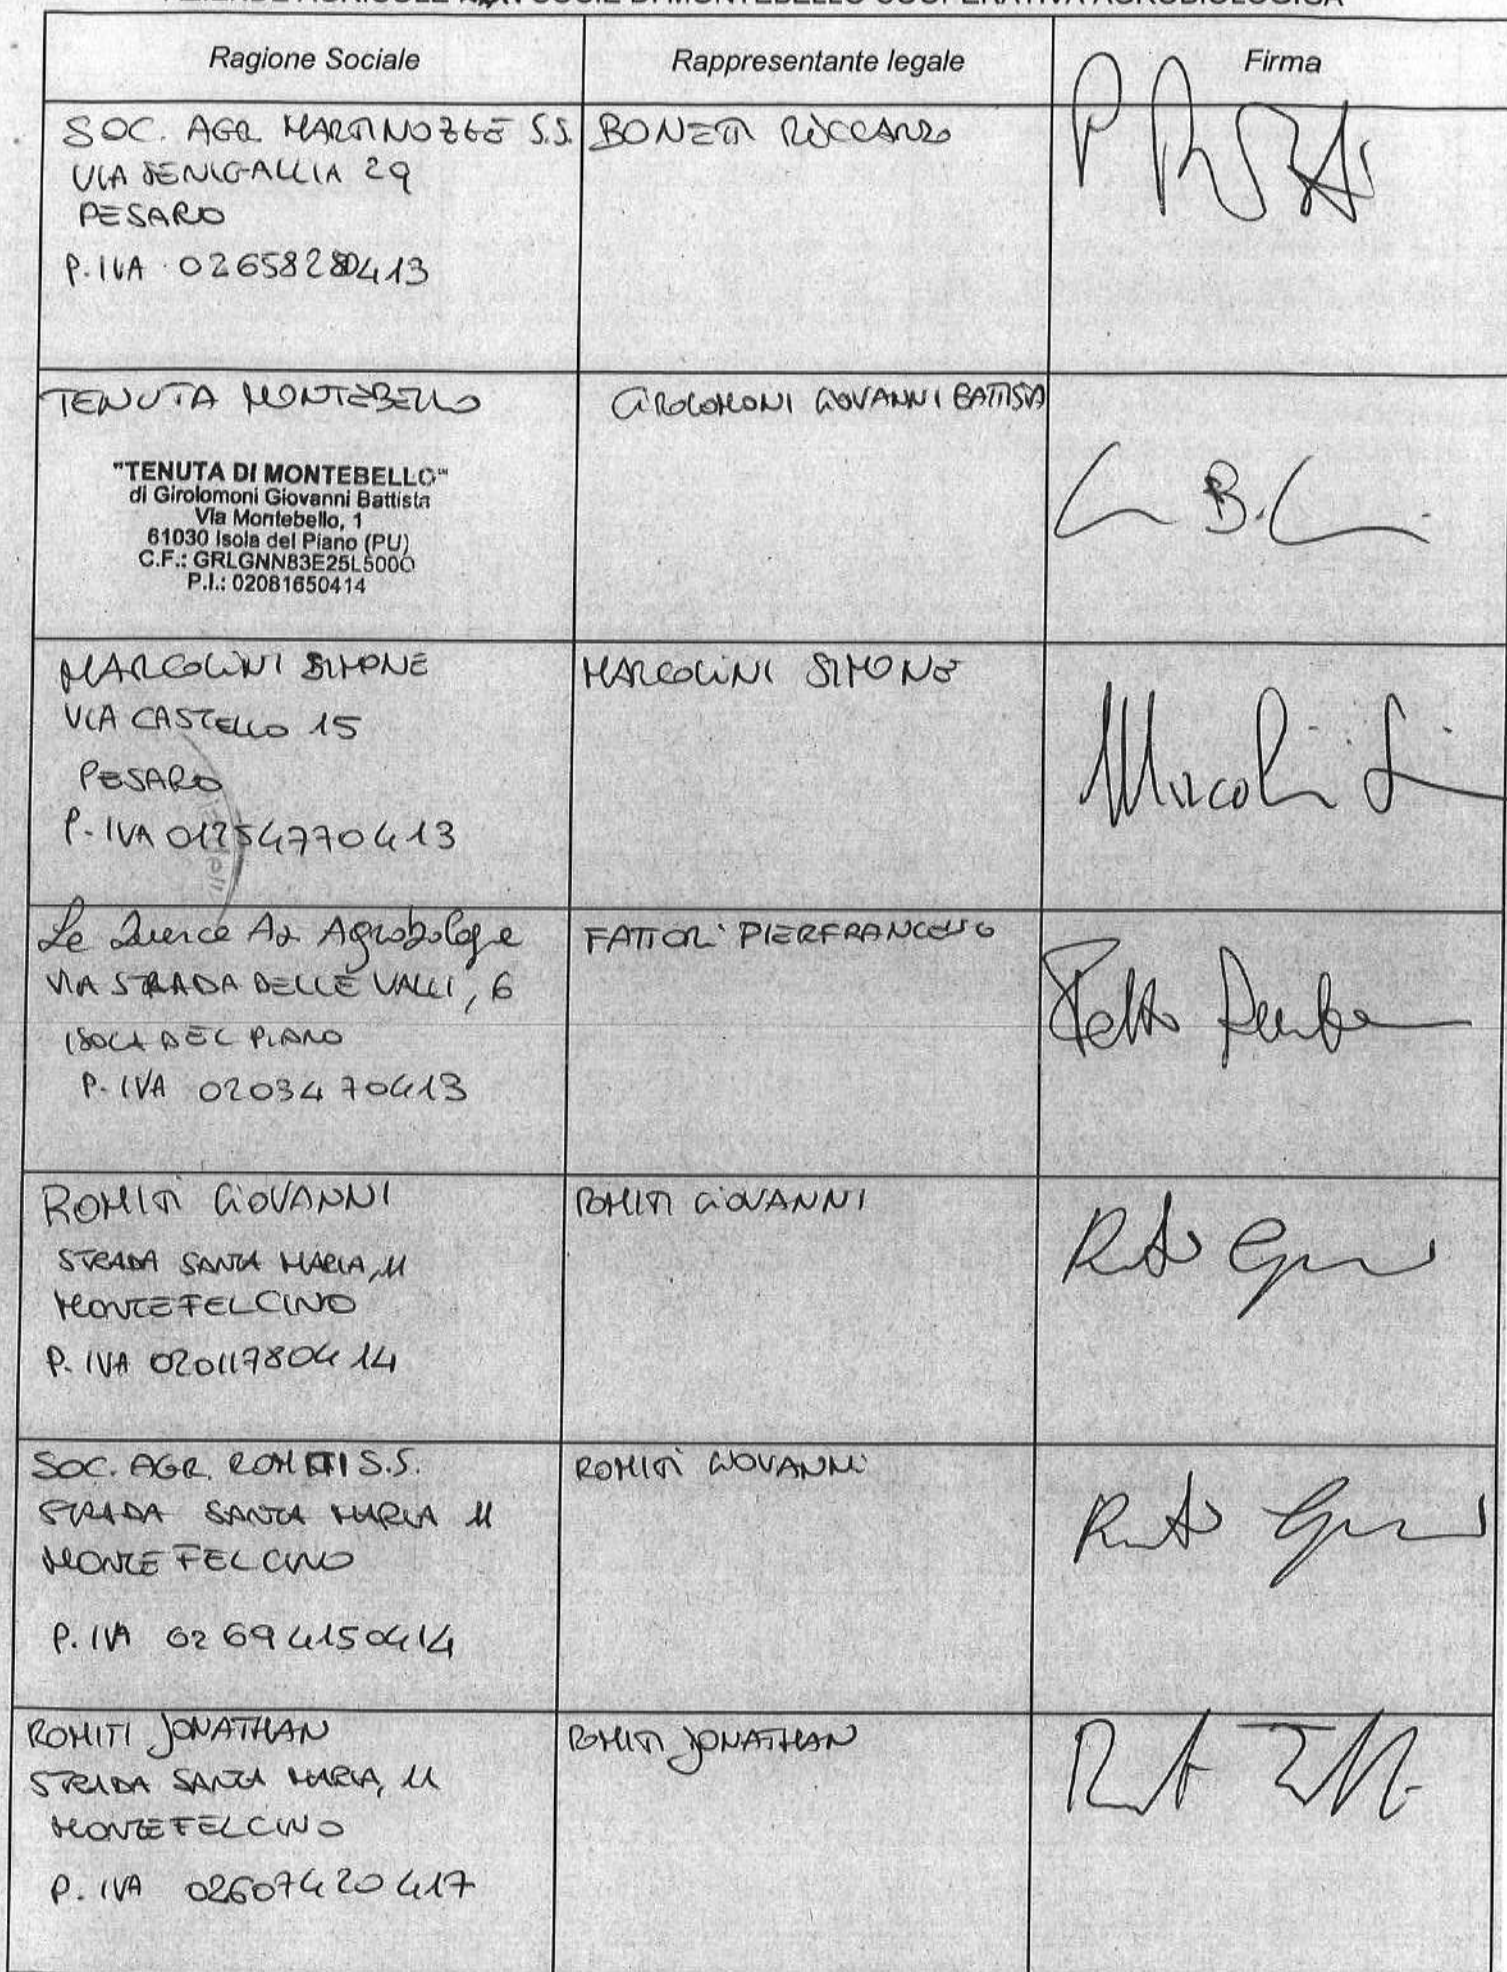 SOCIE DI MONTEBELLO COOPERATIVA AGROBIOLOGICA
Ragione Sociale
Rappresentante legale
Firma
SOC. AGR. MARTINOZZE S.S.
VIA SENIGALLIA 29
PESARO
P. IVA 02658280413
BONETTI ROCCARDO
TENUTA MONTEBELLO
"TENUTA DI MONTEBELLO"
di Girolomoni Giovanni Battista
Via Montebello, 1
61030 Isola del Piano (PU)
C.F.: GRLGNN83E25L500O
P.I.: 02081650414
GIROLOMONI GIOVANNI BATTISTA
MARCOLINI SIMONE
VIA CASTELLO 15
PESARO
P. IVA 01254770413
MARCOLINI SIMONE
Le Querce Az Agrobiologe
VIA STRADA DELLE VALLI, 6
ISOLA DEL PIANO
P. IVA 0203470413
FATTORI PIERFRANCESCO
ROMITI GIOVANNI
STRADA SANTA MARIA, 11
MONTEFELCINO
P. IVA 02011780414
ROMITI GIOVANNI
SOC. AGR. ROMITI S.S.
STRADA SANTA MARIA 11
MONTEFELCINO
P. IVA 02694150414
ROMITI GIOVANNI
ROMITI JONATHAN
STRADA SANTA MARIA, 11
MONTEFELCINO
P. IVA 02607420417
ROMITI JONATHAN